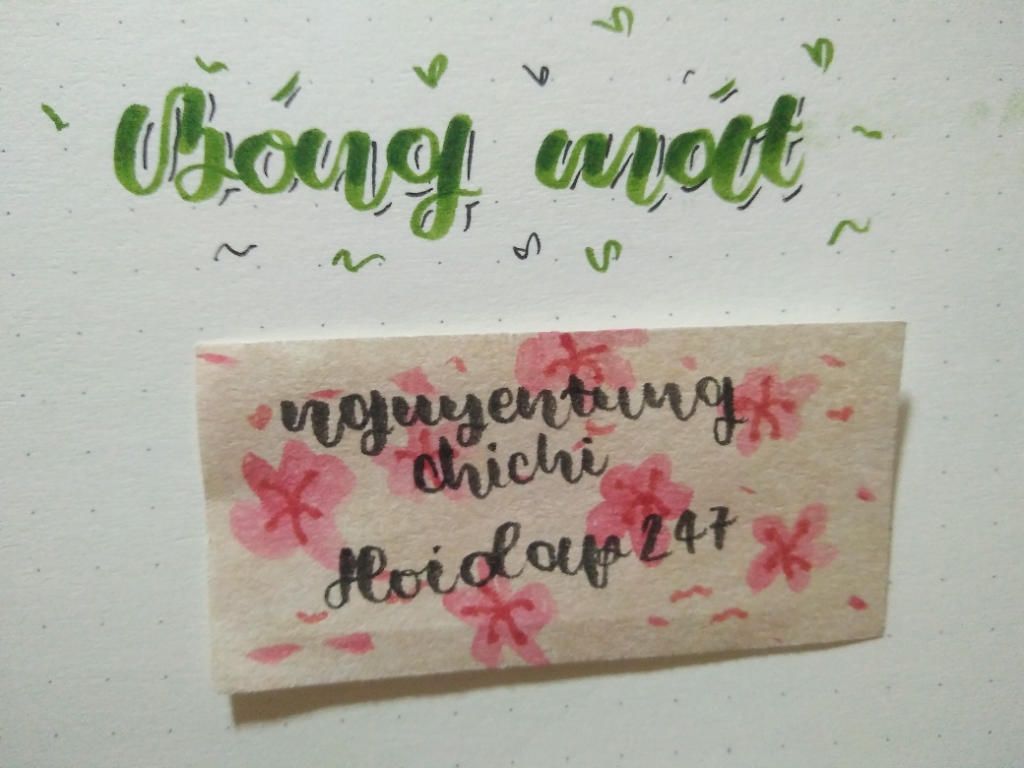 Bóng mát
nguyentung
chichi
Hoidap 247